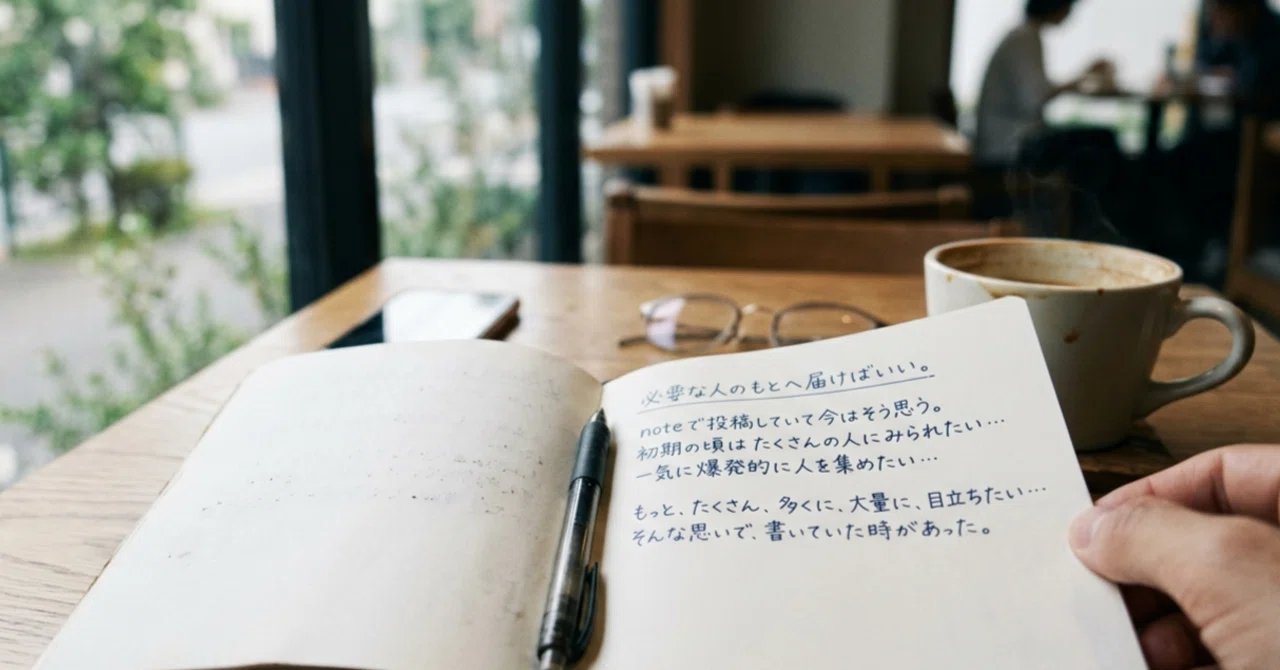 必要な人のもとへ届けばいい。
noteで投稿していて今はそう思う。
初期の頃は たくさんの人にみられたい…
一気に爆発的に人を集めたい…
もっと、たくさん、多くに、大量に、目立ちたい…
そんな思いで、書いていた時があった。